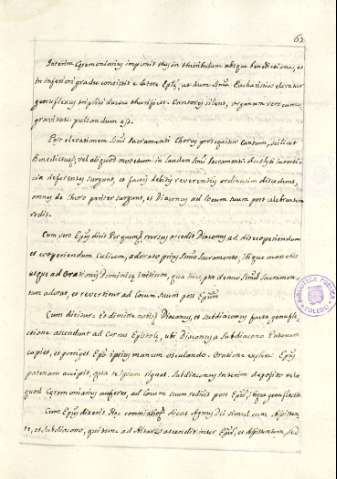 62
Interim Cęremoniarius imponit thus in thuribulum absque benedictione, et
in inferiori gradu consistit a latere Epłi, ut dum Smũ Eucharistiæ elevatur
genuflexus triplici ductu thurificet. Cantores silent, organum vero cum
gravitate pulsandum est.
Post elevationem Smi Sacramenti Chorus prosequitur cantum, scilicet
Benedictus, vel aliquod motetum in laudem Smi Sacramenti
deferentes surgunt, et factis debitis reverentiis ordinatim discedunt,
omnes de Choro pariter surgunt, et Diaconus ad locum suum post celebrantem
redit.
Cum vero Epũs dicit Per quem rursus accedit Diaconus ad discooperiendum
et cooperiendum Calicem, adorato prius Smo Sacramento, ibique manet
usque ad Orationis Dominicę initium, qua
tum adorat, et revertitur ad locum suum post Epum
Cum dicitur: Et dimitte nobis Diaconus, et subdiaconus facta genufle-
xione ascendunt ad Cornu Epistolę, ubi Diaconus a Subdiacono Patenam
capit, et porrigit Epo ipsius manum osculando. Oratione expleta Epũs
patenam accipit, qua se ipsum signat. Subdiaconus interim deposito velo
quod Cęremoniarius aufert, ad locum suum redit post Epũ,
Cum Epũs dixerit Hęc commixtio dicat Agnus Dei simul cum Assisten-
te, et subdiacono, qui tunc ad Altare ascendit inter Epũ, et Assistentem, sed
BIBLIOTECA PUBLICA
TOLEDO